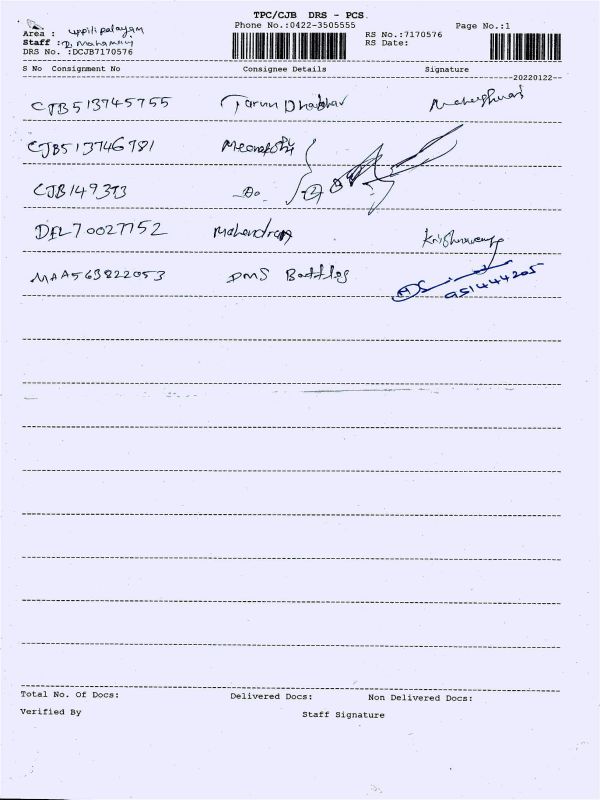 TPC/CJB DRS - PCS
Phone No.:0422-3505555
Page No.:1
Area : uppilipalayam
RS No.:7170576
Staff :
RS Date:
DRS No. :DCJB7170576
S No Consignment No Consignee Details Signature
20220122
CJB513745755 Tarun
CJB513746781
CJB149393 -Do- (2)
DEL70027752 Mahendran
MAA563822053 DMS
Total No. Of Docs: Delivered Docs: Non Delivered Docs:
Verified By Staff Signature